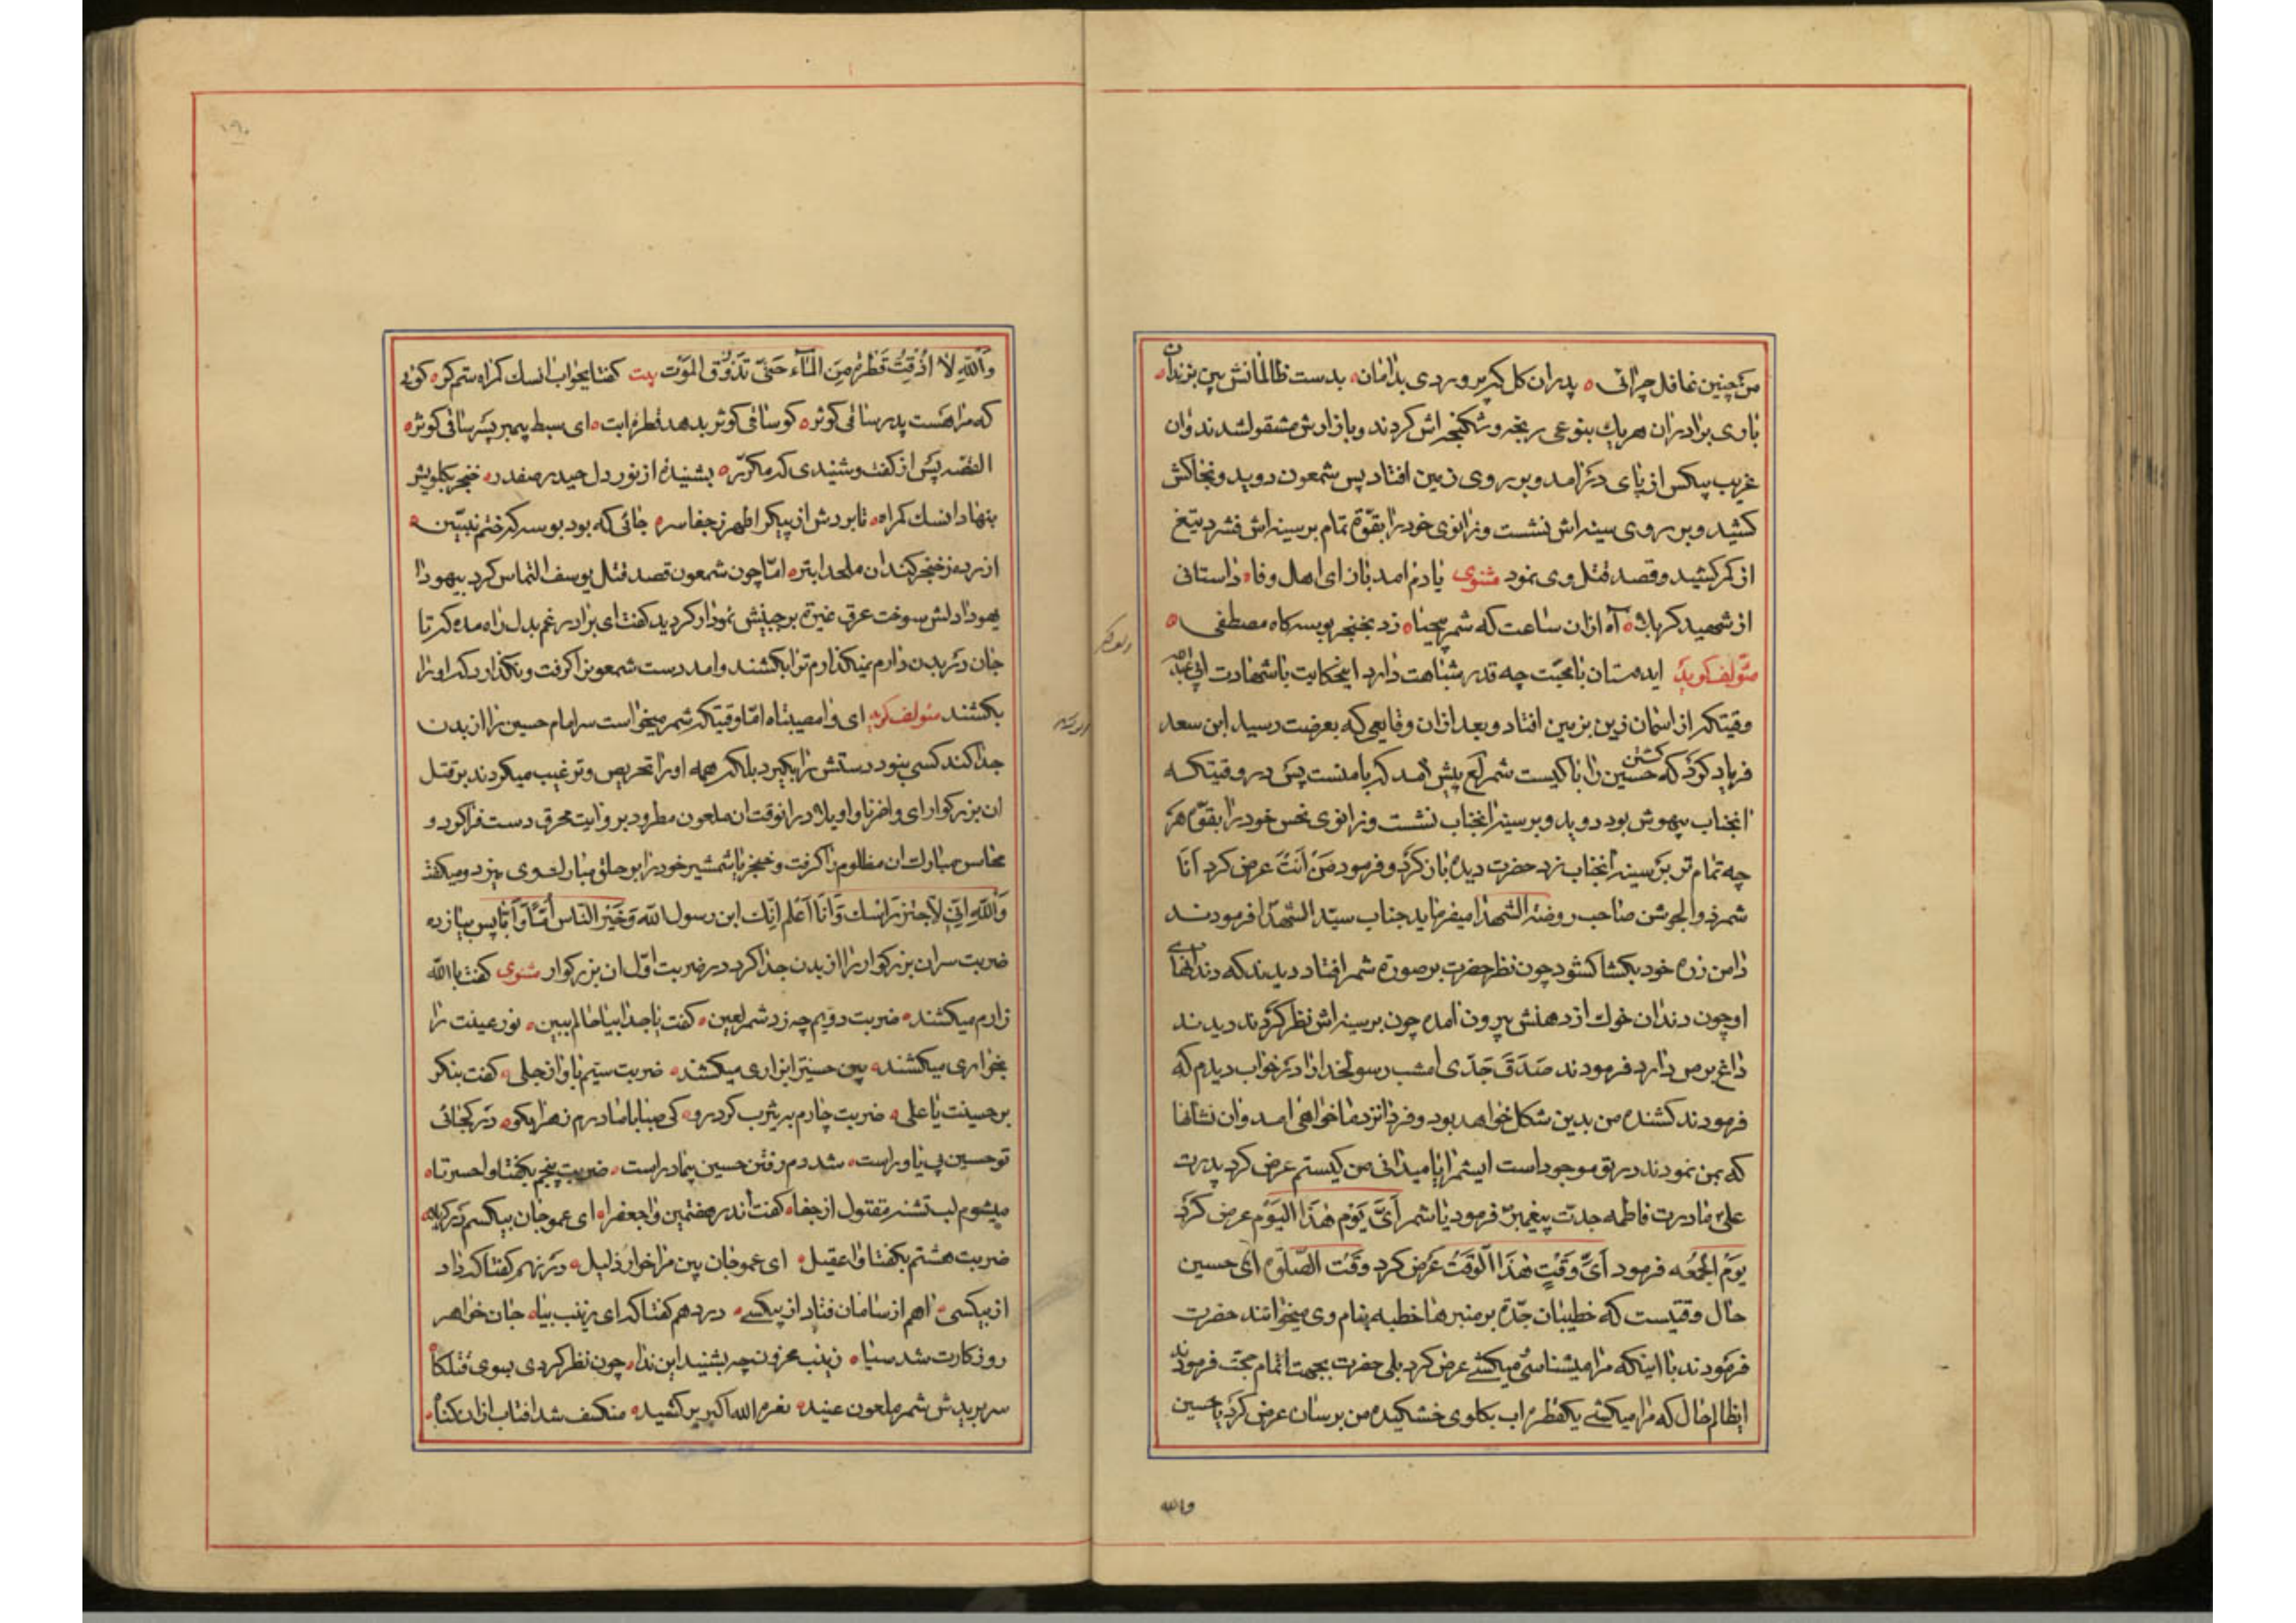 من چنین غافل چرائی پدران کل کبر پروردی بدامان بدست ظالمانش بین بزندان
باری برادران هریك بنوعی رنجه و شکنجه اش کردند و بازارش مشقولشدند وان
غریب بیکس از پای درامد و بر روی زمین افتاد پس شمعون دوید و بخاکش
کشید و بر روی سینه اش نشست و زانوی خود را بقوّة تمام بر سینه اش فشرد تیغ
از کمر کشید و قصد قتل وی نمود مثنوی یادم امد باز ای اهل وفا داستانی
از شهید کربلا آه ازان ساعت که شمر بیحیا زد بخنجر بوسه کاه مصطفی
مؤلف کوید ایدوستان با محبّت چه قدر شباهت دارد اینحکایت با شهادت ابی عبدالله
وقتیکه از اسمان زین بزمین افتاد و بعد ازان وقایعی که بعرضت رسید ابن سعد
فریاد کرد که کشتن حسین را با کیست شمر لع پیش امد که با منست پس در وقتیکه
انجناب بیهوش بود دوید و بر سینه انجناب نشست و زانوی نحس خود را بقوّة هر
چه تمام تر بر سینه انجناب زد حضرت دیده باز کرد و فرمود مَنْ اَنْتَ عرض کرد اَنَا
شمر ذوالجوشن صاحب روضة الشهدا میفرماید جناب سیّد الشهدا فرمودند
دامن زره خود بکشا کشود چون نظر حضرت بر صورة شمر افتاد دیدند که دندانهای
او چون دندان خوك از دهنش بیرون امده چون بر سینه اش نظر کردند دیدند
داغ برص دارد فرمودند صَدَقَ جَدّی امشب رسولخدا را در خواب دیدم که
فرمودند کشنده من بدین شکل خواهد بود و فردا نزد ما خواهی امد وان نشانها
که بمن نمودند در تو موجود است ایشمر ایا میدانی من کیستم عرض کرد پدرت
علیّ مادرت فاطمه جدت پیغمبر فرمود یا شمر اَیَّ یَوْمٍ هٰذَا الیَوْم عرض کرد
یَوْمُ الجُمُعَه فرمود اَیَّ وَقْتٍ هٰذَا الْوَقْتُ عرض کرد وَقْت الصَّلوٰة ای حسین
حال وقتیست که خطیبان جدّة بر منبرها خطبه بنام وی میخوانند حضرت
فرمودند با اینکه مرا میشناسی میکشی عرض کرد بلی حضرت بجهت اتمام حجت فرمودند
ایظالم حال که مرا میکشی یکقطره اب بکلوی خشکیده من برسان عرض کرد یا حسین
والله
۱۹۰
وَاللهِ لا اُذُقِتُ قَطْرَة مِنَ المَاَء حَتّی تَذُوْقَ المَوْت بیت کفتا بجواب انسك کمراه ستم کر کوئی
که مرا هست پدر ساقی کوثر کو ساقی کوثر بدهد قطره ابت ای سبط پیمبر پسر ساقی کوثر
القصّه پس از کفت و شنیدی که مکرّر بشنیده از نور دل حیدر صفدر خنجر بکلویش
بنهاد انسك کمراه تا بردش از پیکر اطهر ز جفا سر جائی که بود بوسه که ختم نبیّین
ازرده ز خنجر کند ان ملحد ابتر امّا چون شمعون قصد قتل یوسف التماس کرد بیهودا
یهودا دلش سوخت عرق غیرة بر جبینش نمودار کردید کفت ای برادر غم بدل راه مده که تا
جان در بدن دارم نمیکذارم ترا بکشند و امد دست شمعون را کرفت و نکذارد که اورا
بکشند مئولف کوید ای وامصیبتاه امّا وقتیکه شمر میخواست سر امام حسین را از بدن
جدا کند کسی نبود دستش را بکیرد بلکه همه اورا تحریص و ترغیب میکردند بر قتل
ان بزرکوار ای واحزناه واویلاه در انوقت ان ملعون مطرود بروایت محرق دست فراکرد و
محاسن مبارك ان مظلوم را کرفت و خنجر یا شمشیر خود را بر حلق مبارك وی میزد و میکفت
وَاللهِ اِنّی لاَجتز رَاسَك وَاَنَا اَعْلَم اِنّك ابن رسول الله وَخَیْر النّاس اُمّاً وَاَبَا پس بیازده
ضربت سر ان بزرکوار را از بدن جدا کرد در ضربت اوّل ان بزرکوار مثنوی کفت یا الله
زارم میکشند ضربت دویم چه زد شمر لعین کفت یا جدا بیا حالم ببین نور عینت را
بخواری میکشند بین حسینت را بزاری میکشند ضربت سیّم باواز جلی کفت بنکر
بر حسینت یا علی ضربت چارم به یثرب کرد رو کی صبا با مادرم زهرا بکو در کجائی
تو حسین بی یاور است شد دم رفتن حسین بیمادر است ضربت پنجم بکفتا واحسرتاه
میشوم لب تشنه مقتول از جفا کفت اندر هفتمین واجعفرا ای عمو جان بیکسم در کربلا
ضربت هشتم بکفتا واعقیل ای عمو جان بین مرا خوار و ذلیل در نهم کفتا که داد
از بیکسی اهم از سامان فتاد از بیکسی در دهم کفتا که ای زینب بیا جان خواهر
روزکارت شد سیاه زینب محزون چه بشنید این ندا چون نظر کردی بسوی قتلکاه
سر بریدش شمر ملعون عنید نعره الله اکبر بر کشید منکسف شد افتاب ازان کناه